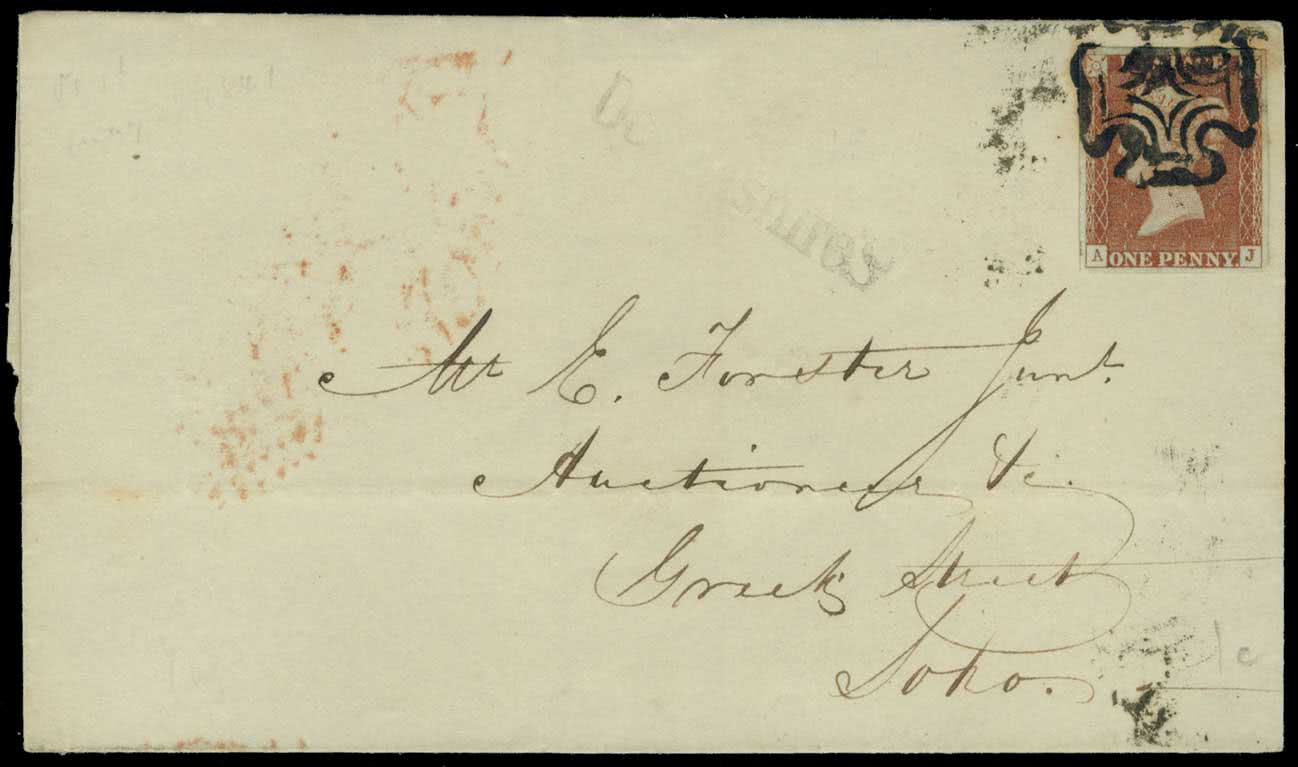 A ONE PENNY J
Mr E. Forster Junr.
Auctioneer &c.
Greek Street
Soho.